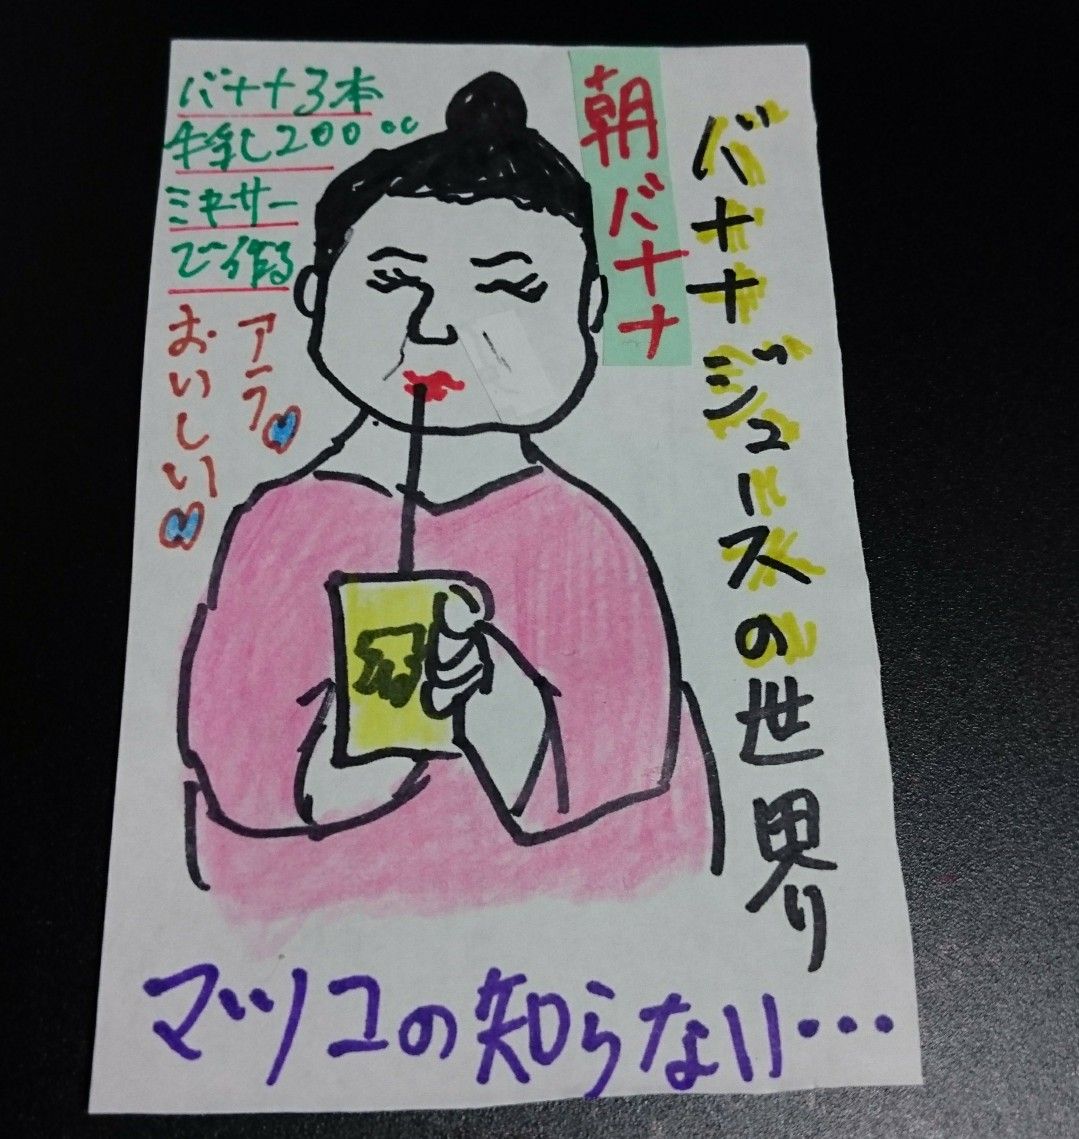 バナナジュースの世界
朝バナナ
バナナ3本
牛乳200cc
ミキサー
で作る
アラ
おいしい
マツコの知らない…